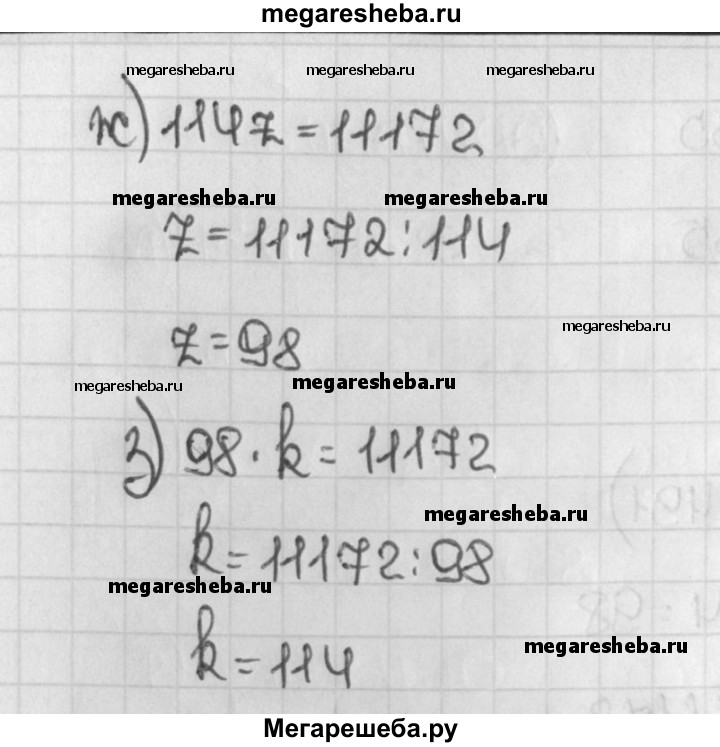 megaresheba.ru
megaresheba.ru megaresheba.ru megaresheba.ru
ж) 114z = 11172
megaresheba.ru megaresheba.ru
z = 11172 : 114
megaresheba.ru
z = 98
megaresheba.ru megaresheba.ru
з) 98 · k = 11172
megaresheba.ru
k = 11172 : 98
megaresheba.ru
megaresheba.ru
k = 114
Мегарешеба.ру